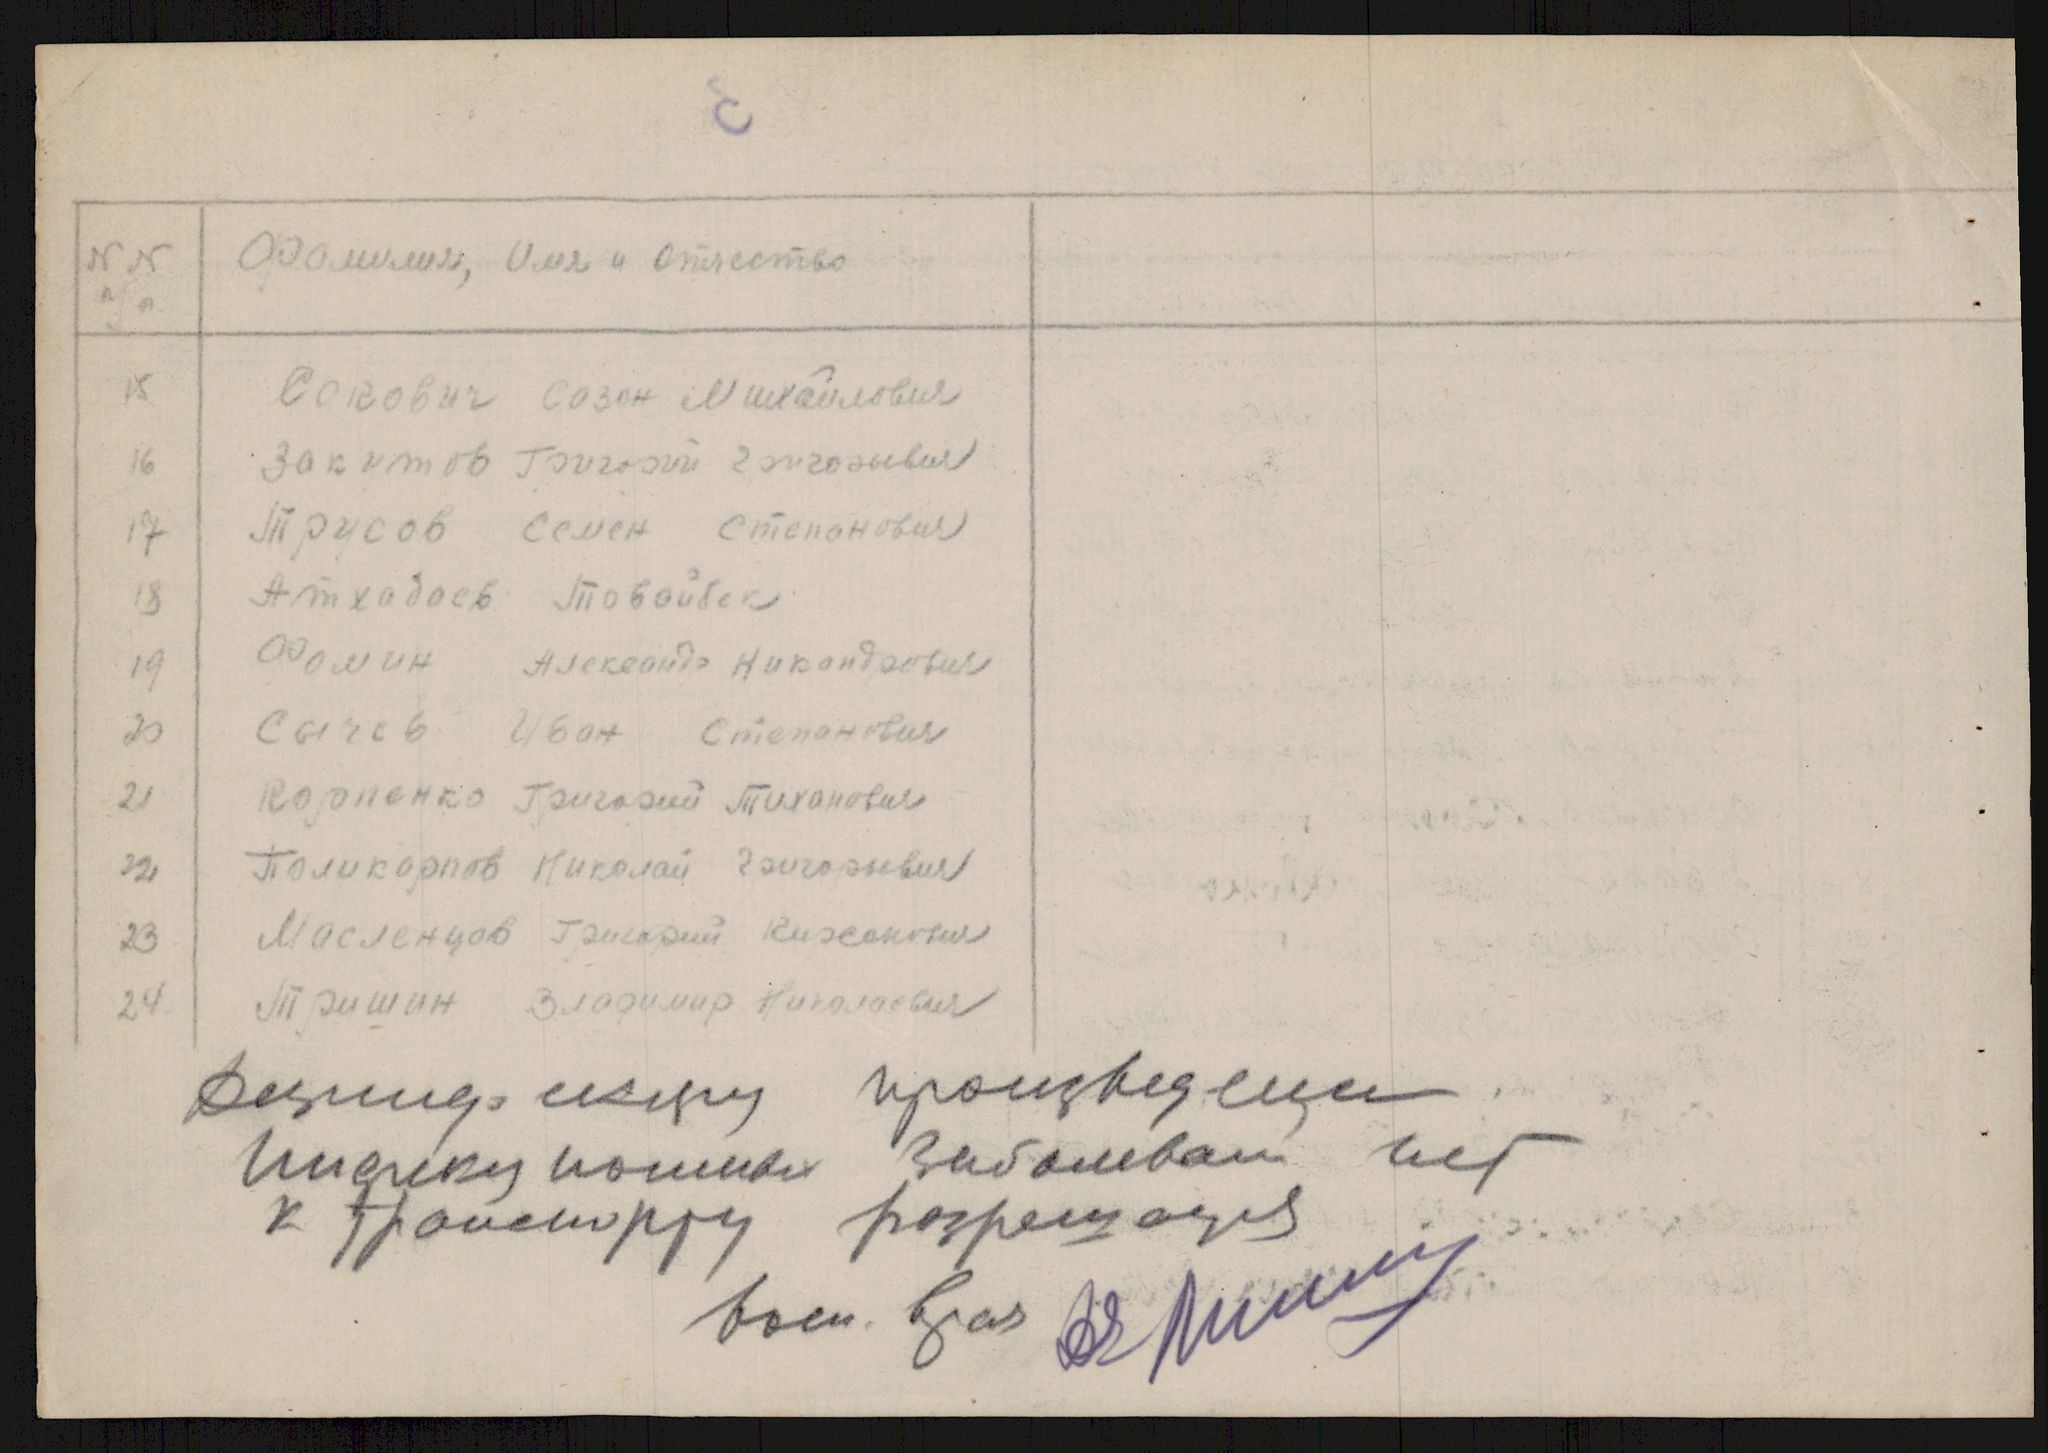 с
№ №
п/п.
Фамилия, Имя и Отчество
15 Сакович Сазон Михайлович
16 Закутов Григорий Григорьевич
17 Трусов Семен Степанович
18 Атхадаев Товайбек
19 Фомин Александр Никандрович
20 Сычев Иван Степанович
21 Карпенко Григорий Тиханович
22 Поликарпов Николай Григорьевич
23 Масленцов Григорий
24 Тришин Владимир Николаевич
произведена
Инфекционных заболеваний нет
К транспорту разрешается
воен. врач